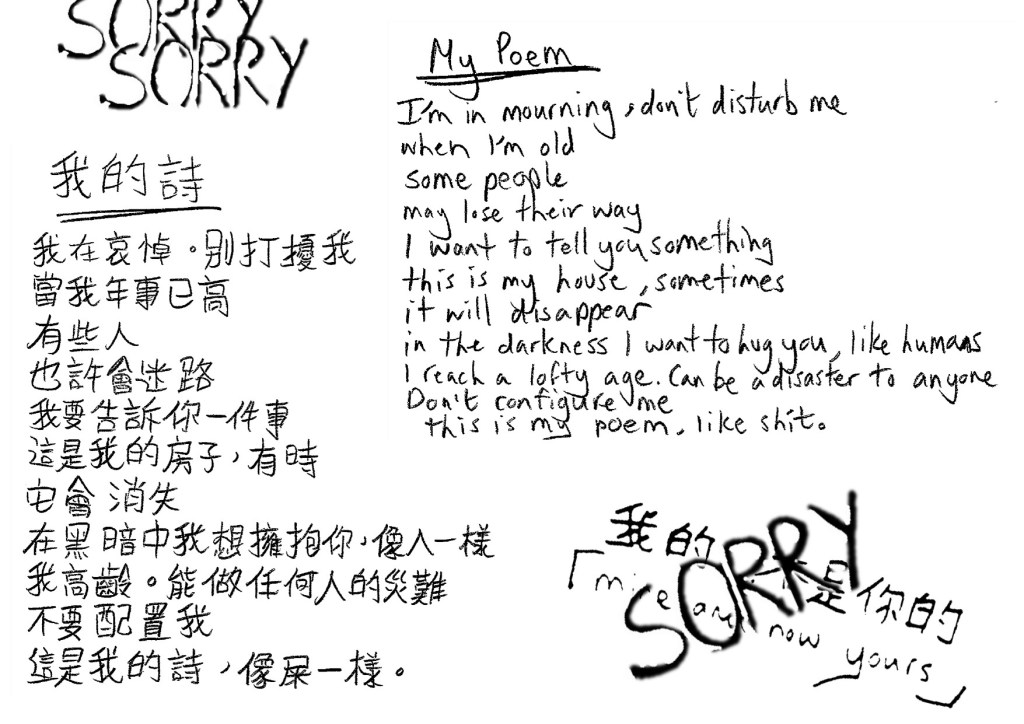 SORRY
SORRY
我的詩
我在哀悼。別打擾我
當我年事已高
有些人
也許會迷路
我要告訴你一件事
這是我的房子，有時
它會消失
在黑暗中我想擁抱你，像人一樣
我高齡。能做任何人的災難
不要配置我
這是我的詩，像屎一樣。
My Poem
I'm in mourning, don't disturb me
when I'm old
some people
may lose their way
I want to tell you something
this is my house, sometimes
it will disappear
in the darkness I want to hug you, like humans
I reach a lofty age. Can be a disaster to anyone
Don't configure me
this is my poem, like shit.
我的 是你的
SORRY
「mine are now yours」